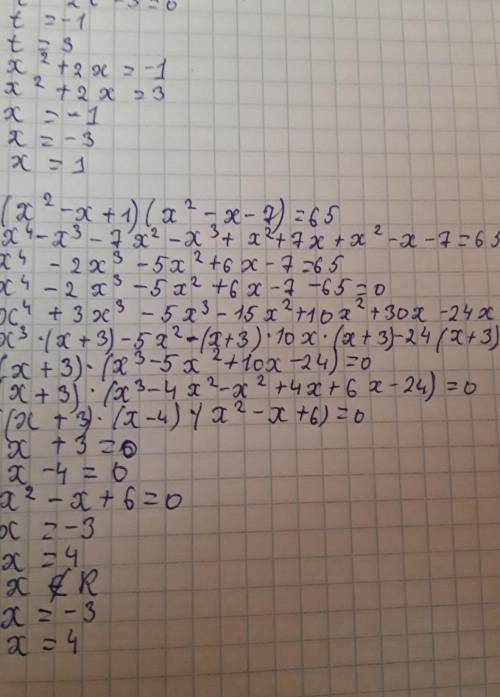 2x - 3 = 0
t = -1
t = 3
x² + 2x = -1
x² + 2x = 3
x = -1
x = -3
x = 1
(x² - x + 1)(x² - x - 7) = 65
x⁴ - x³ - 7x² - x³ + x² + 7x + x² - x - 7 = 65
x⁴ - 2x³ - 5x² + 6x - 7 = 65
x⁴ - 2x³ - 5x² + 6x - 7 - 65 = 0
x⁴ + 3x³ - 5x³ - 15x² + 10x² + 30x - 24x
x³·(x + 3) - 5x² - (x + 3)·10x·(x + 3) - 24(x + 3)
(x + 3)·(x³ - 5x² + 10x - 24) = 0
(x + 3)·(x³ - 4x² - x² + 4x + 6x - 24) = 0
(x + 3)·(x - 4)·(x² - x + 6) = 0
x + 3 = 0
x - 4 = 0
x² - x + 6 = 0
x = -3
x = 4
x ∉ R
x = -3
x = 4